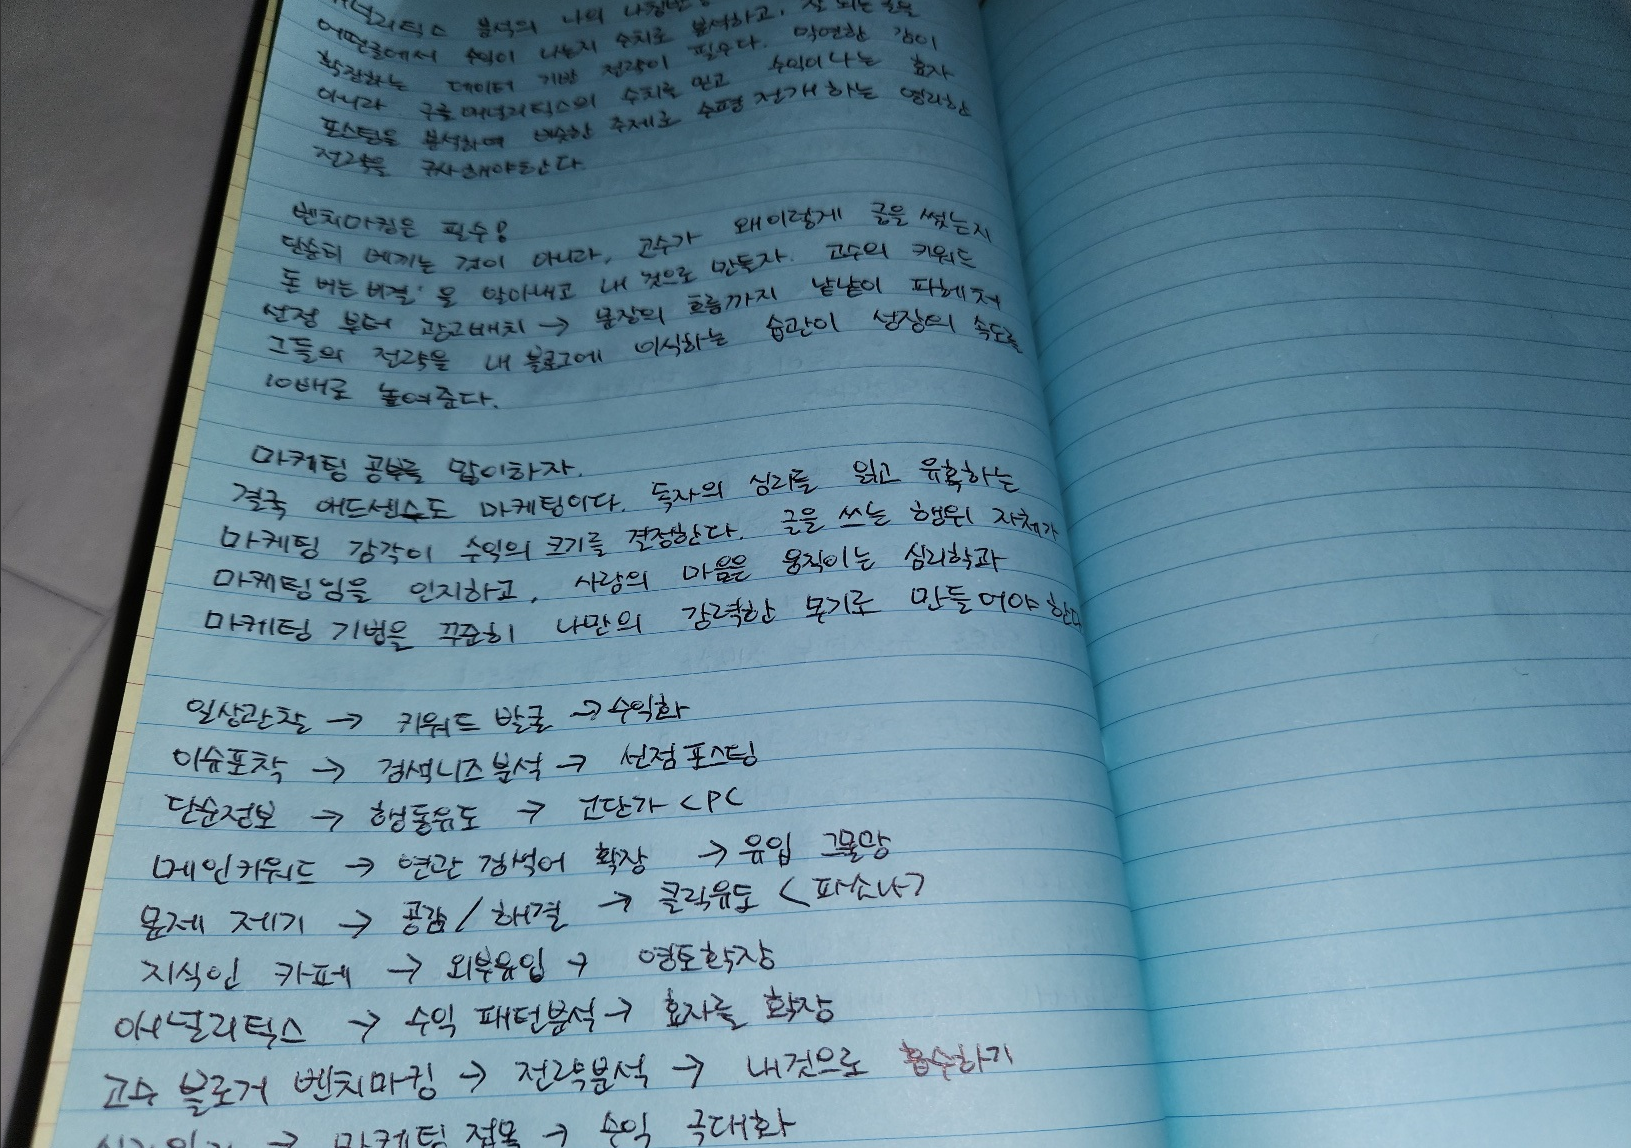 애널리틱스 분석의 나의
어떤글에서 수익이 나는지 수치로 분석하고, 잘 되는 글을
확장하는 데이터 기반 전략이 필수다. 막연한 감이
아니라 구글애널리틱스의 수치를 믿고 수익이 나는 효자
포스팅을 분석하여 비슷한 주제로 수평 전개 하는 영리한
전략을 구사해야한다.
벤치마킹은 필수!
단순히 베끼는 것이 아니라, 고수가 왜 이렇게 글을 썼는지
돈 버는 비결'을 알아내고 내 것으로 만들자. 고수의 키워드
선정 부터 광고배치 → 문장의 흐름까지 낱낱이 파헤쳐
그들의 전략을 내 블로그에 이식하는 습관이 성장의 속도를
10배로 높여준다.
마케팅 공부를 많이하자.
결국 애드센스도 마케팅이다. 독자의 심리를 읽고 유혹하는
마케팅 감각이 수익의 크기를 결정한다. 글을 쓰는 행위 자체가
마케팅임을 인지하고, 사람의 마음을 움직이는 심리학과
마케팅 기법을 꾸준히 나만의 강력한 무기로 만들어야 한다
일상관찰 → 키워드 발굴 → 수익화
이슈포착 → 검색니즈분석 → 선점포스팅
단순정보 → 행동유도 → 고단가 CPC
메인키워드 → 연관 검색어 확장 → 유입 그물망
문제 제기 → 공감/해결 → 클릭유도 <파소나>
지식인 카페 → 외부유입 → 영토확장
애널리틱스 → 수익 패턴분석 → 효자글 확장
고수 블로거 벤치마킹 → 전략분석 → 내것으로 흡수하기
→ 마케팅 접목 → 수익 극대화